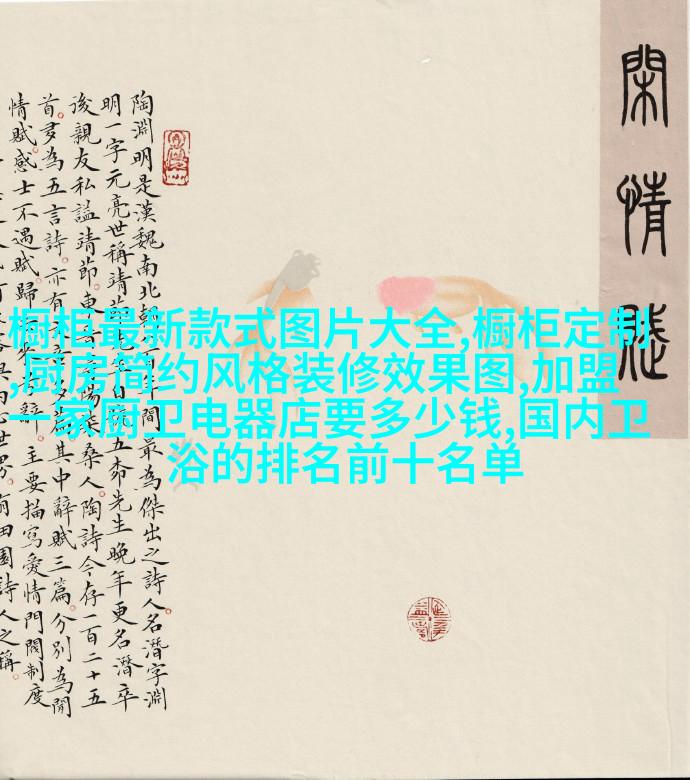 閑情賦
陶淵明是漢魏南北朝年間最為傑出之詩人名潛字淵
明一字元亮世稱靖五先生晚年更名潛卒
後親友私謚靖節東桑人陶詩今存一百二十五
首多為五言詩亦有其中辭賦三篇分別為閒
情賦感士不遇賦歸辭主要描寫愛情門閥制度
田園詩人之稱
橱柜最新款式图片大全,橱柜定制
,厨房简约风格装修效果图,加盟
一家厨卫电器店要多少钱,国内卫
浴的排名前十名单